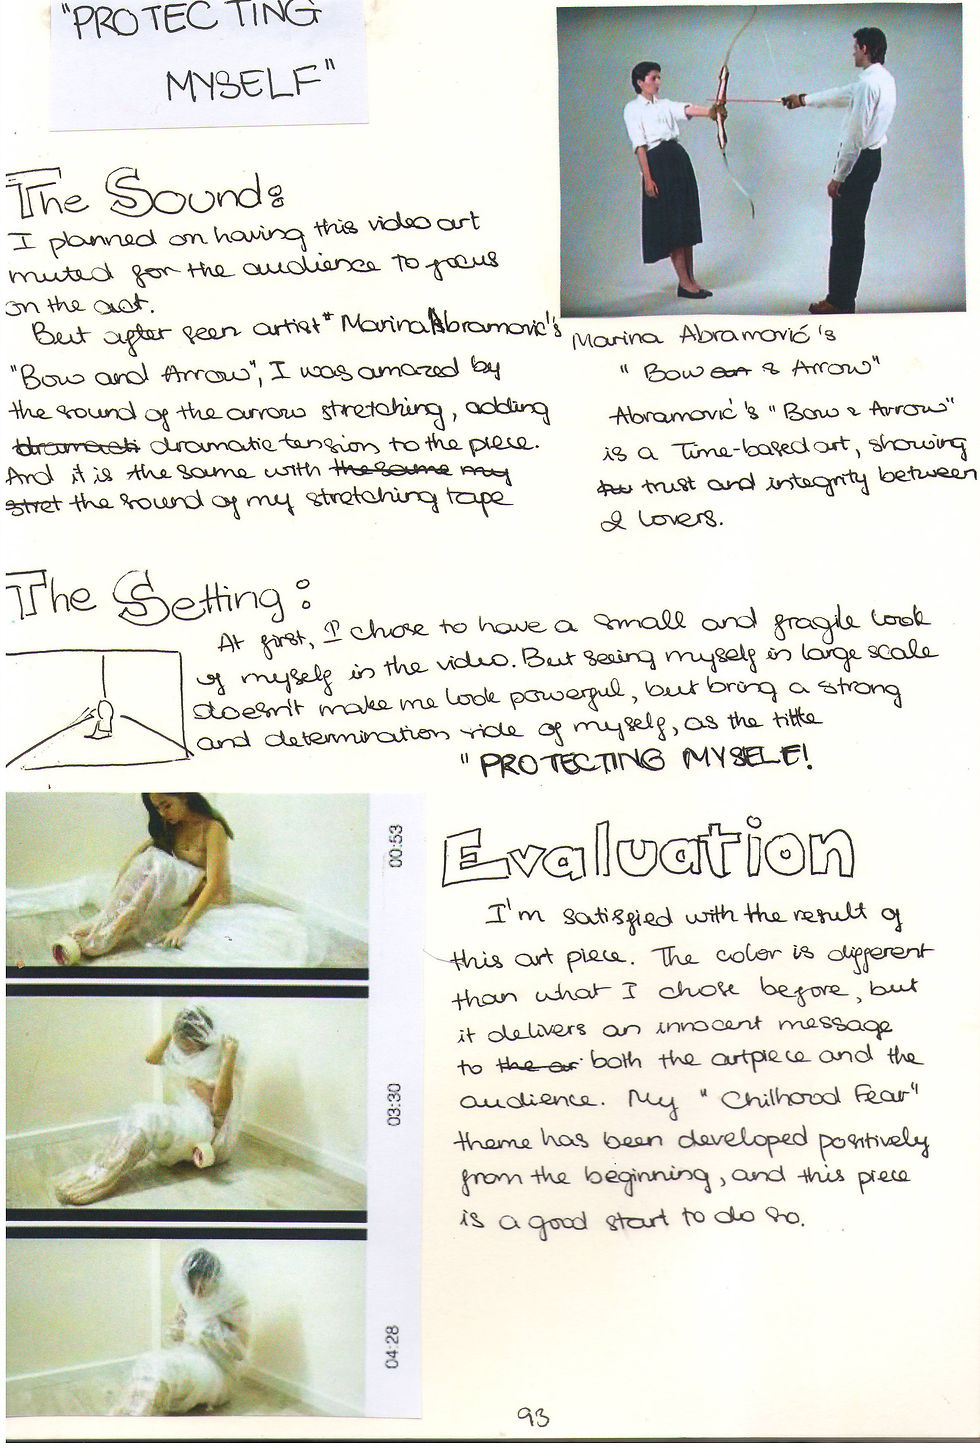 "PROTECTING
MYSELF"
The Sound:
I planned on having this video art
muted for the audience to focus
on the art.
But after seen artist" Marina Abramović's
"Bow and Arrow", I was amazed by
the sound of the arrow stretching, adding
dramacti dramatic tension to the piece.
And it is the same with the same my
stret the sound of my stretching tape
Marina Abramović's
" Bow an & Arrow"
Abramović's "Bow & Arrow"
is a Time-based art, showing
trust and integrity between
2 lovers.
The Setting:
At first, I chose to have a small and fragile look
of myself in the video. But seeing myself in large scale
doesn't make me look powerful, but bring a strong
and determination side of myself, as the tittle
"PROTECTING MYSELF!
00:53
03:30
04:28
Evaluation
I'm satisfied with the result of
this art piece. The color is different
than what I chose before, but
it delivers an innocent message
to the ar both the artpiece and the
audience. My "Chilhood Fear"
theme has been developed positively
from the beginning, and this piece
is a good start to do so.
93